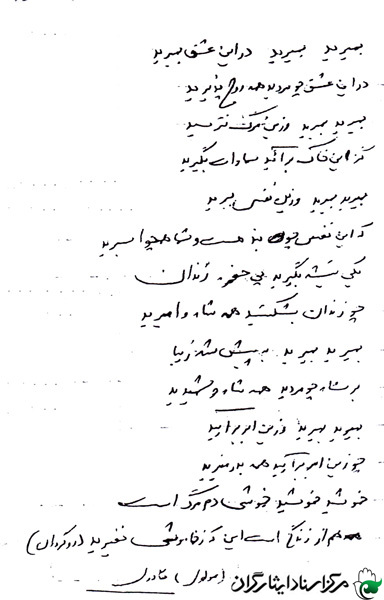 بمیرید بمیرید در این عشق بمیرید
در این عشق چو مردید همه روح پذیرید
بمیرید بمیرید وزین مرگ نترسید
کز این خاک برآئید سماوات بگیرید
بمیرید بمیرید وزین نفس ببرید
که این نفس چو بند است و شما همچو اسیرید
یکی تیشه بگیرید پی حفره زندان
چو زندان بشکستید همه شاه و امیرید
بمیرید بمیرید به پیش شه زیبا
بر شاه چو مردید همه شاه و شهیرید
بمیرید بمیرید وزین ابر برآیید
چو زین ابر برآیید همه بدر منیرید
خموشید خموشید خموشی دم مرگ است
هم از زندگی است این که ز خاموشی نفیرید (روگردان)
(مولوی)
مرکز اسناد ایثارگران